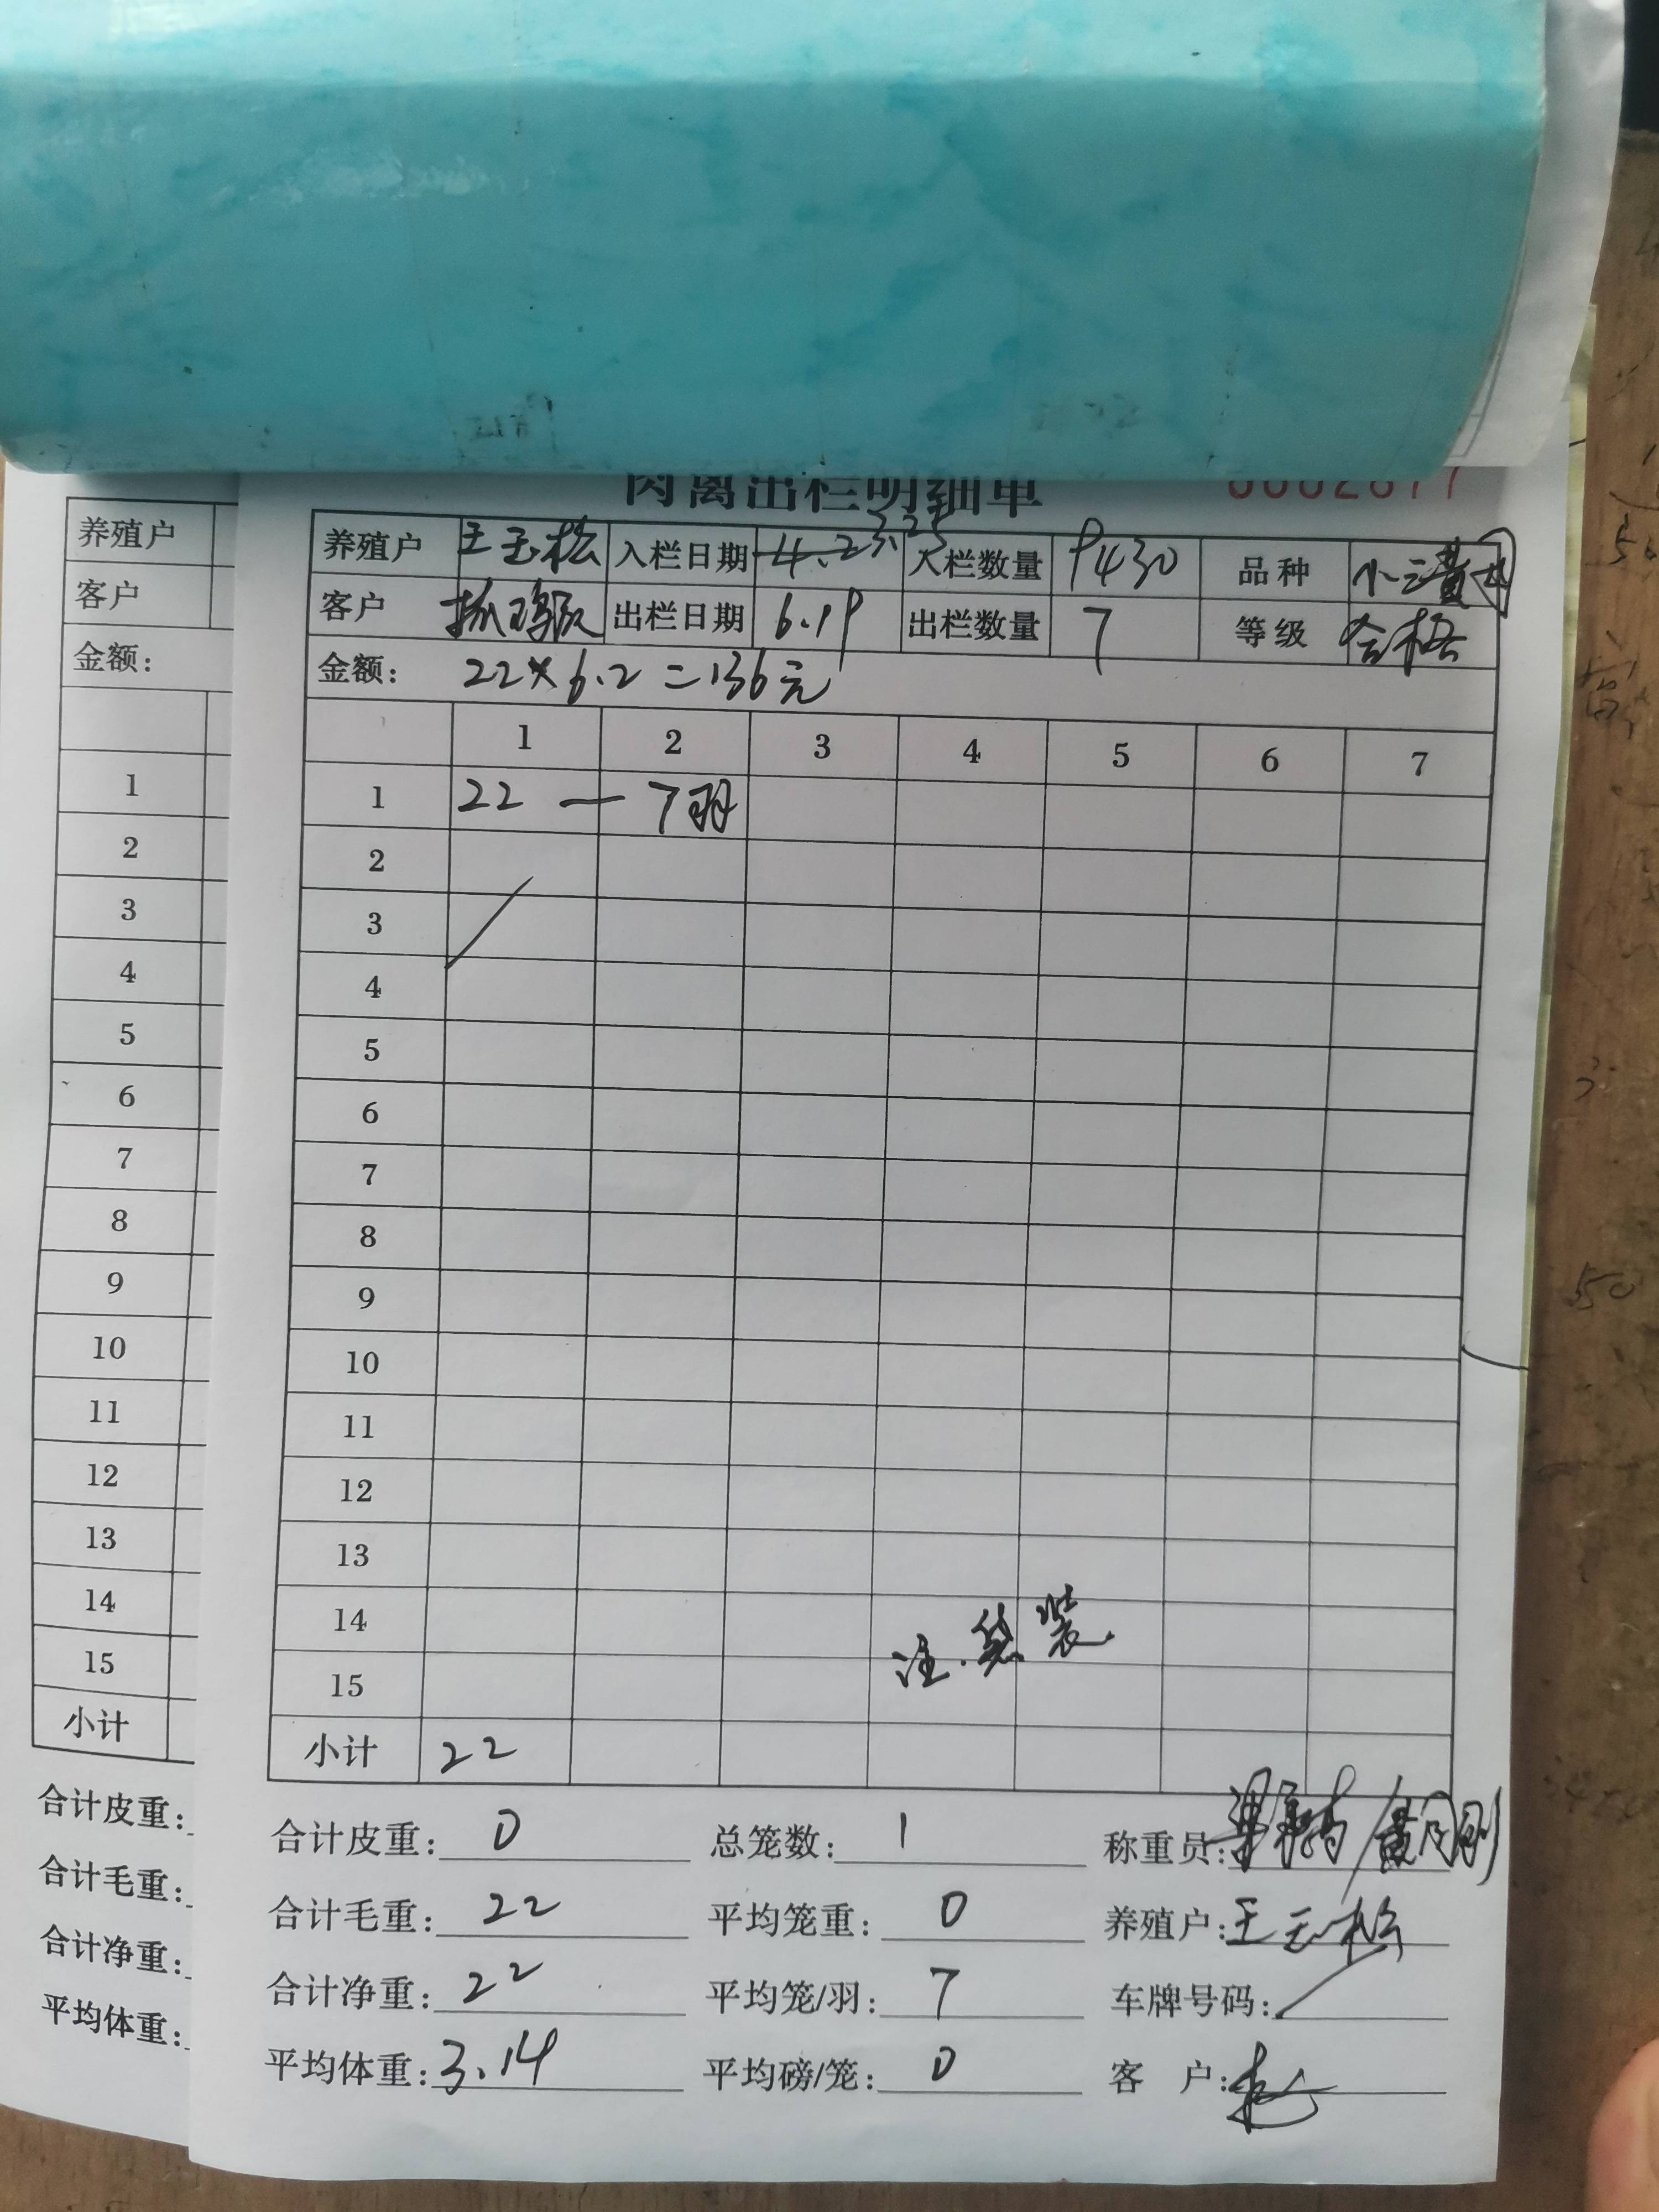 肉禽出栏明细单 0002677
养殖户 王玉松 入栏日期 4.2 3.25 入栏数量 9430 品种 小三黄
客户 抓鸡队 出栏日期 6.19 出栏数量 7 等级 合格
金额： 22×6.2=136元
1 2 3 4 5 6 7
1 22 — 7羽
2
3
4
5
6
7
8
9
10
11
12
13
14
15
注.袋装
小计 22
合计皮重: 0 总笼数: 1 称重员:
合计毛重: 22 平均笼重: 0 养殖户: 王玉松
合计净重: 22 平均笼/羽: 7 车牌号码:
平均体重: 3.14 平均磅/笼: 0 客 户:
养殖户
客户
金额：
1
2
3
4
5
6
7
8
9
10
11
12
13
14
15
小计
合计皮重:
合计毛重:
合计净重:
平均体重:
50